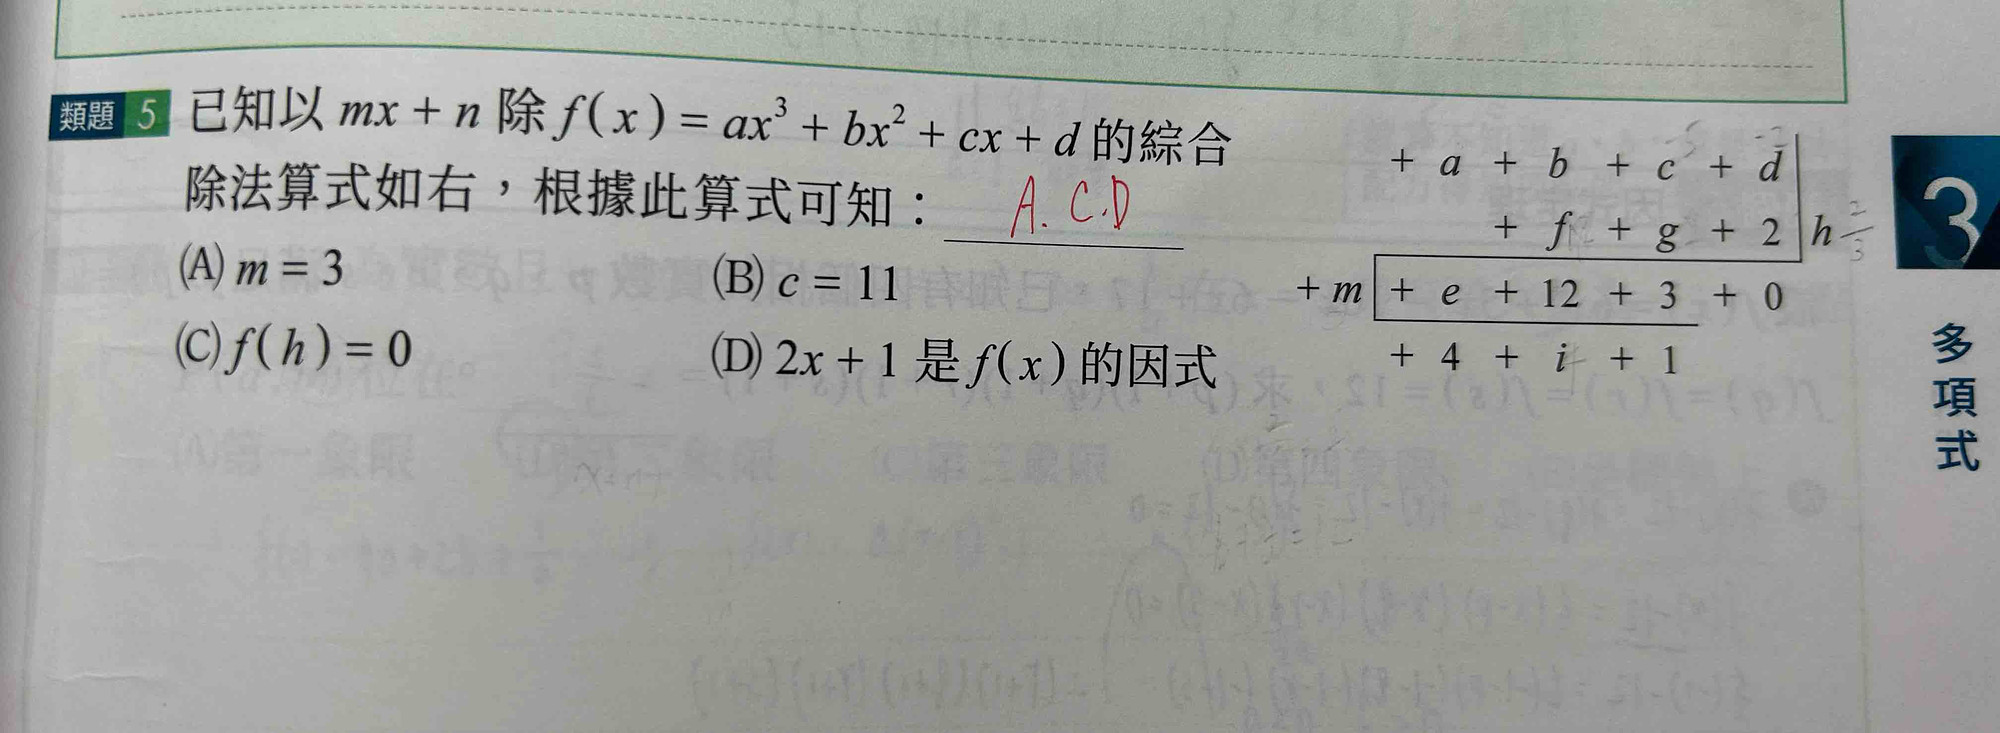 類題 5 已知以 mx + n 除 f(x) = ax³ + bx² + cx + d 的綜合
除法算式如右，根據此算式可知： A. C.D
(A) m = 3 (B) c = 11
(C) f(h) = 0 (D) 2x + 1 是 f(x) 的因式
+ a + b + c + d
+ f + g + 2 h 2/3
+ m + e + 12 + 3 + 0
+ 4 + i + 1
3
多項式